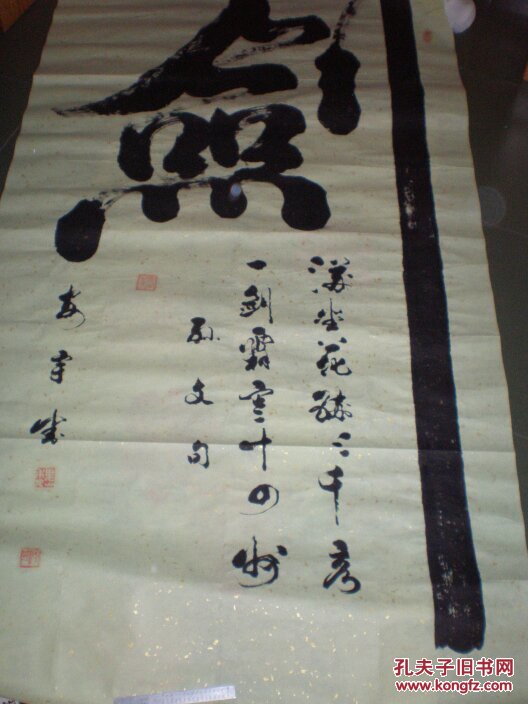 劍
滿堂花醉三千客
一劍霜寒十四州
孫文句
孔夫子旧书网
www.kongfz.com